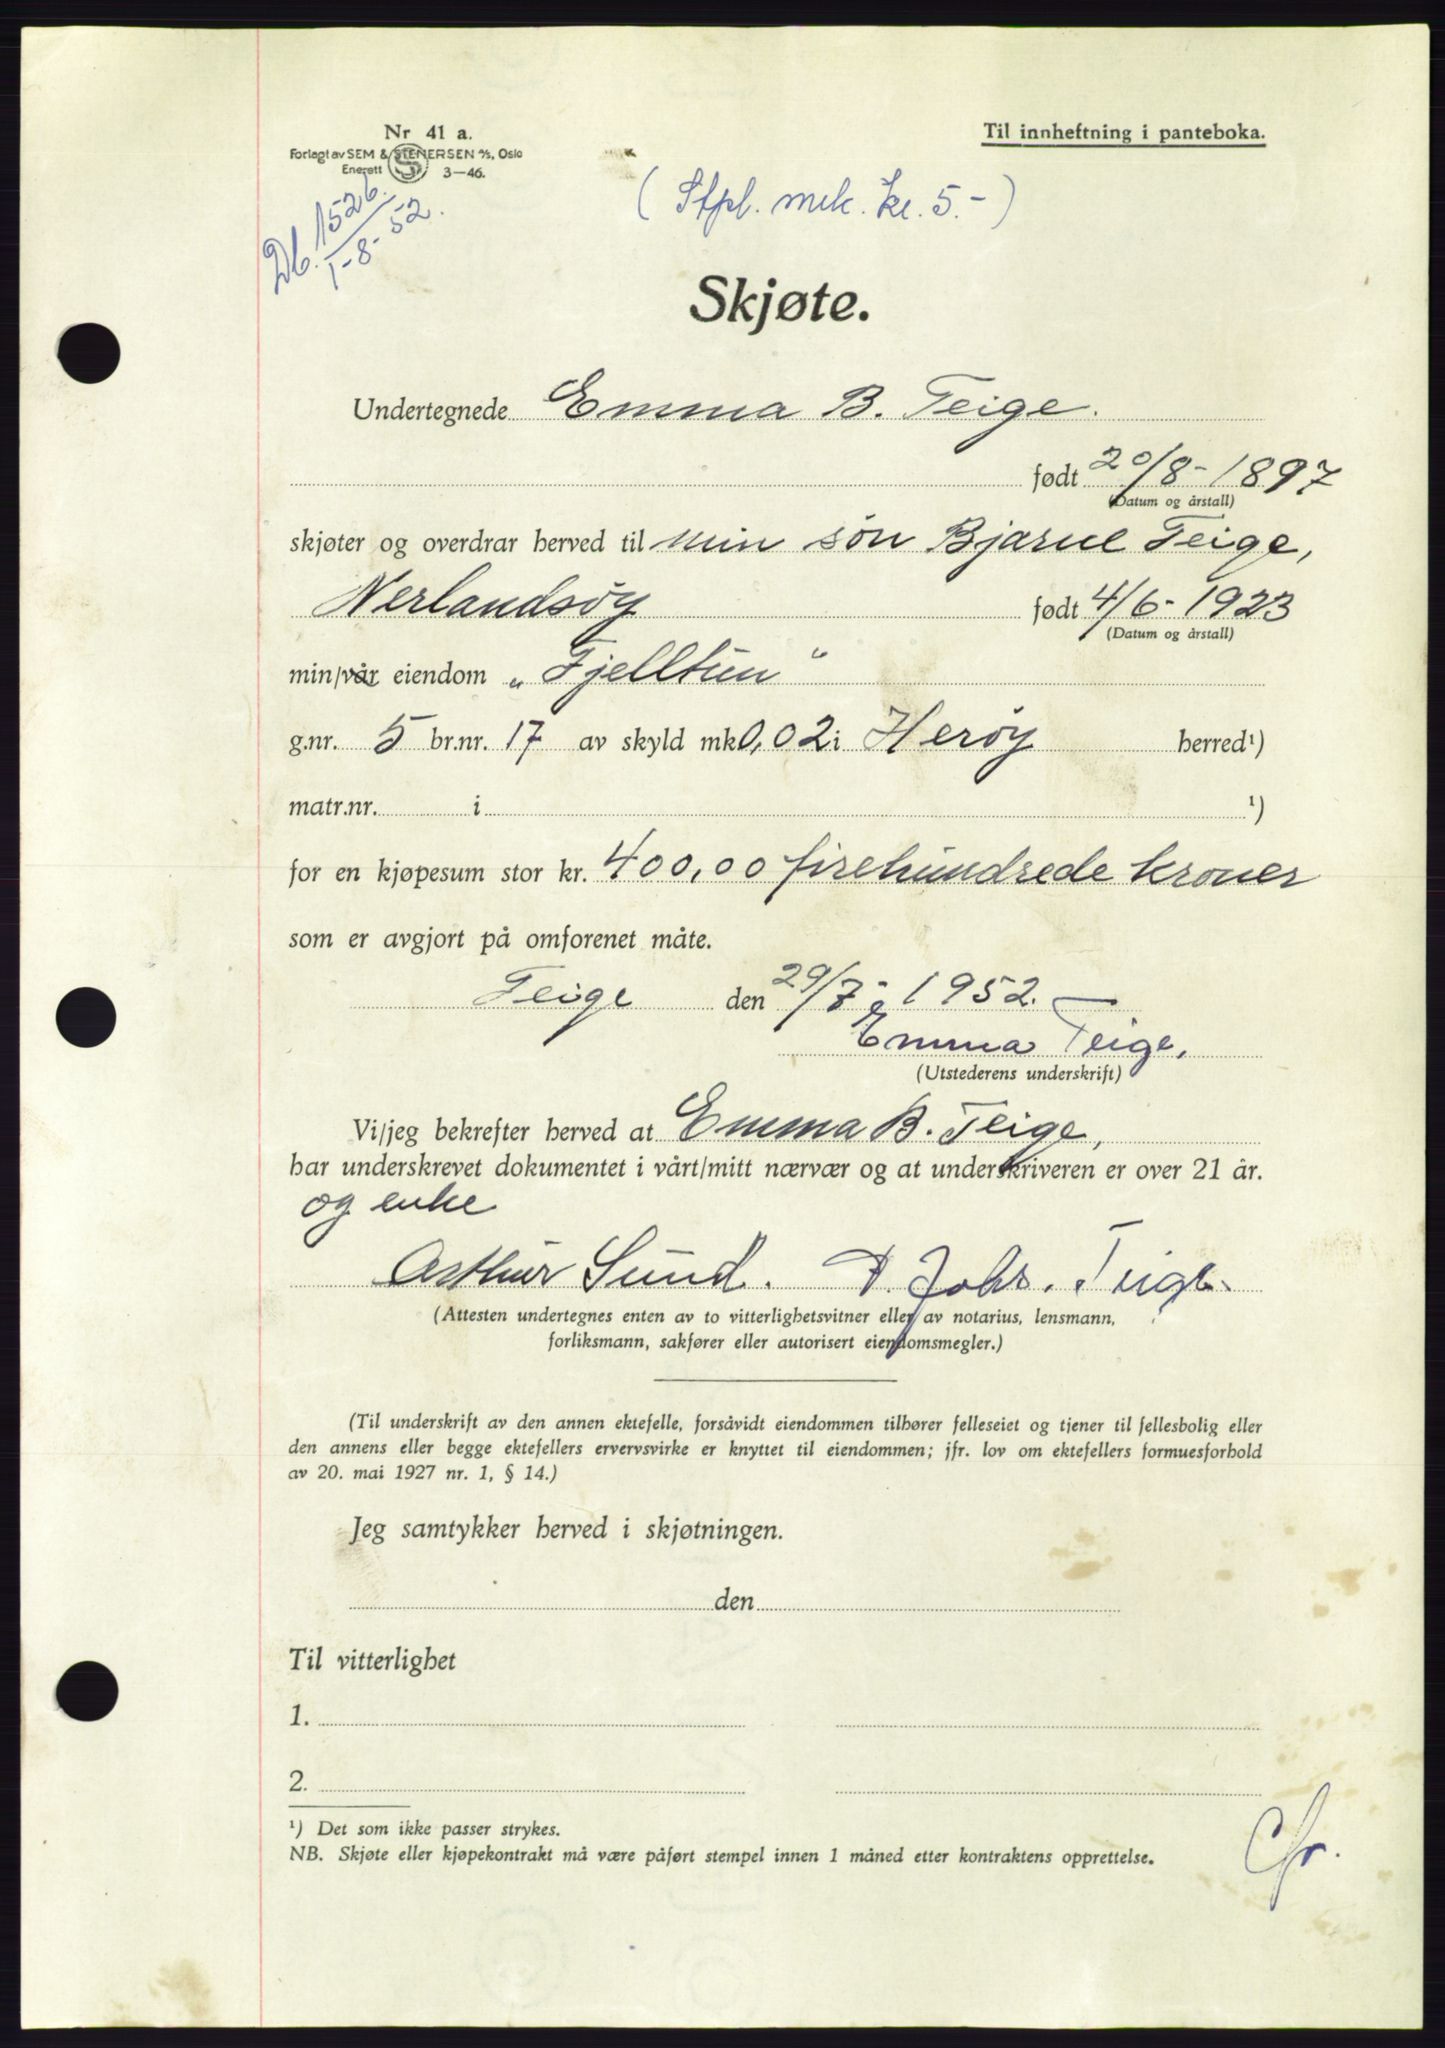 Nr 41 a.
Forlagt av SEM & STENERSEN A/S, Oslo
Enerett 3—46.
Til innheftning i panteboka.
Db. 1526.
1-8-52.
(Stpl. mrk. kr. 5.-)
Skjøte.
Undertegnede Emma B. Teige.
født 20/8-1897
(Datum og årstall)
skjøter og overdrar herved til min søn Bjarne Teige,
Nerlandsøy født 4/6-1923
(Datum og årstall)
min/vår eiendom „Fjelltun“
g.nr. 5 br.nr. 17 av skyld mk 0,02 i Herøy herred¹)
matr.nr. i ¹)
for en kjøpesum stor kr. 400,00 firehundrede kroner
som er avgjort på omforenet måte.
Teige den 29/7-1952.
Emma Teige,
(Utstederens underskrift)
Vi/jeg bekrefter herved at Emma B. Teige,
har underskrevet dokumentet i vårt/mitt nærvær og at underskriveren er over 21 år.
og enke
Arthur Sund. P. Johs. Teige.
(Attesten undertegnes enten av to vitterlighetsvitner eller av notarius, lensmann,
forliksmann, sakfører eller autorisert eiendomsmegler.)
(Til underskrift av den annen ektefelle, forsåvidt eiendommen tilhører felleseiet og tjener til fellesbolig eller
den annens eller begge ektefellers ervervsvirke er knyttet til eiendommen; jfr. lov om ektefellers formuesforhold
av 20. mai 1927 nr. 1, § 14.)
Jeg samtykker herved i skjøtningen.
den
Til vitterlighet
1.
2.
¹) Det som ikke passer strykes.
NB. Skjøte eller kjøpekontrakt må være påført stempel innen 1 måned etter kontraktens opprettelse.